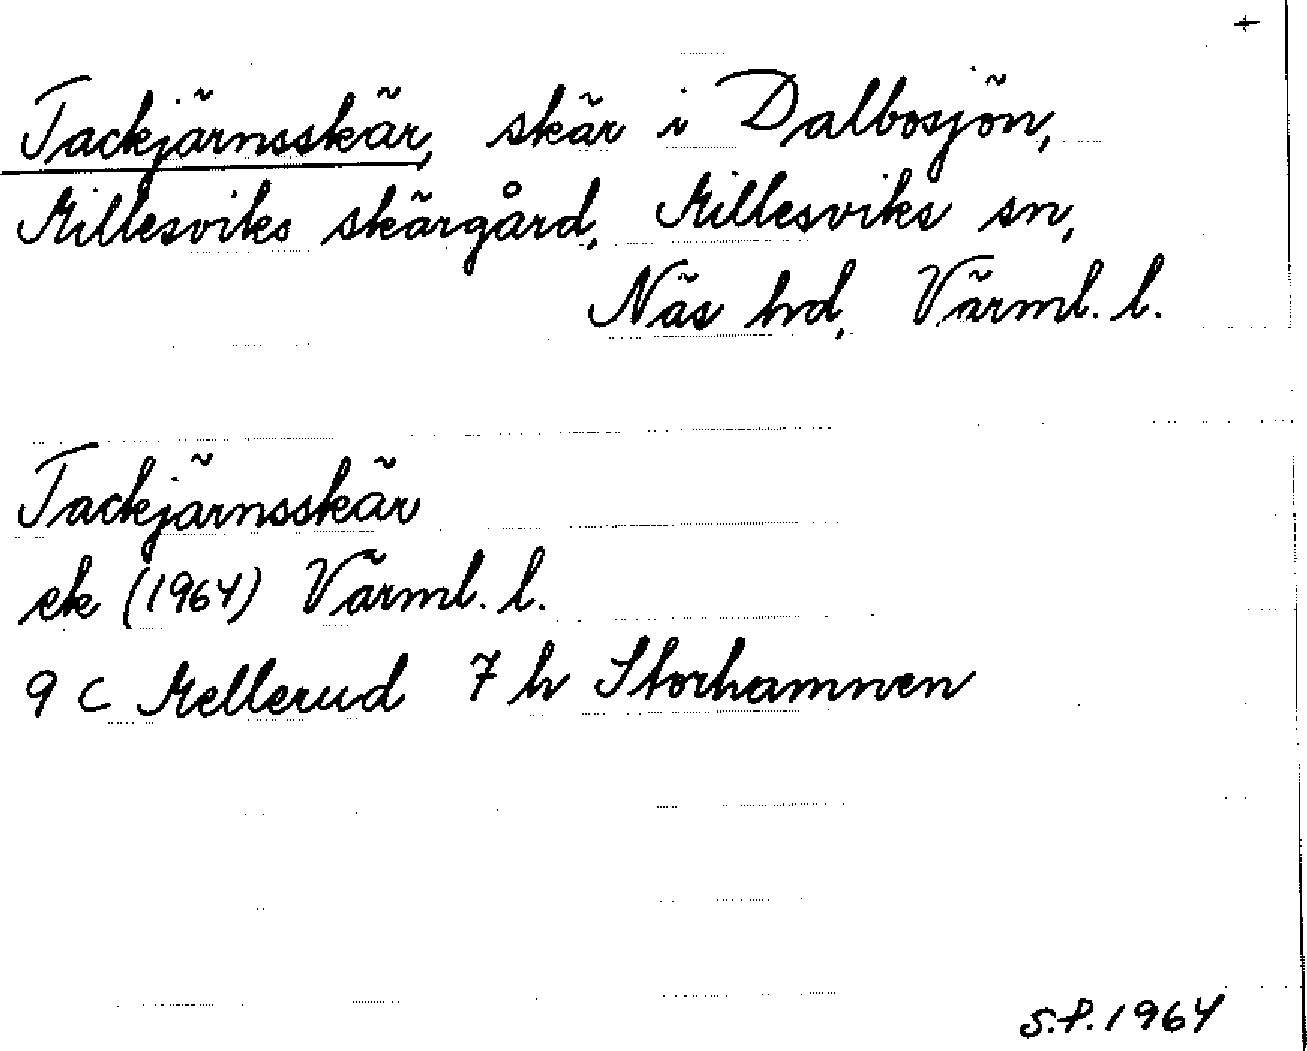 +
Tackjärnsskär, skär i Dalbosjön,
Millesviks skärgård, Millesviks sn,
Näs hd, Värml. l.
Tackjärnsskär
ek (1964) Värml. l.
9 C Mellerud 7 h Storhamnen
S.P. 1964